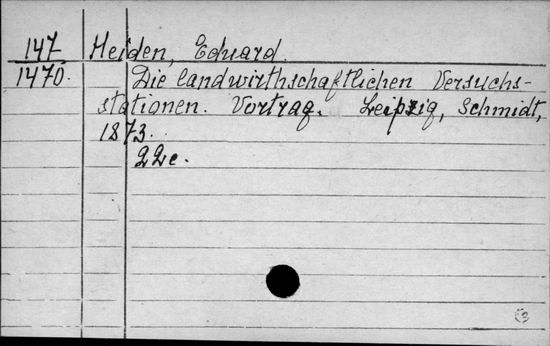 147 Heiden, Eduard.
1470. Die landwirthschaftlichen Versuchs-
stationen. Vortrag. Leipzig, Schmidt,
1873.
22c.